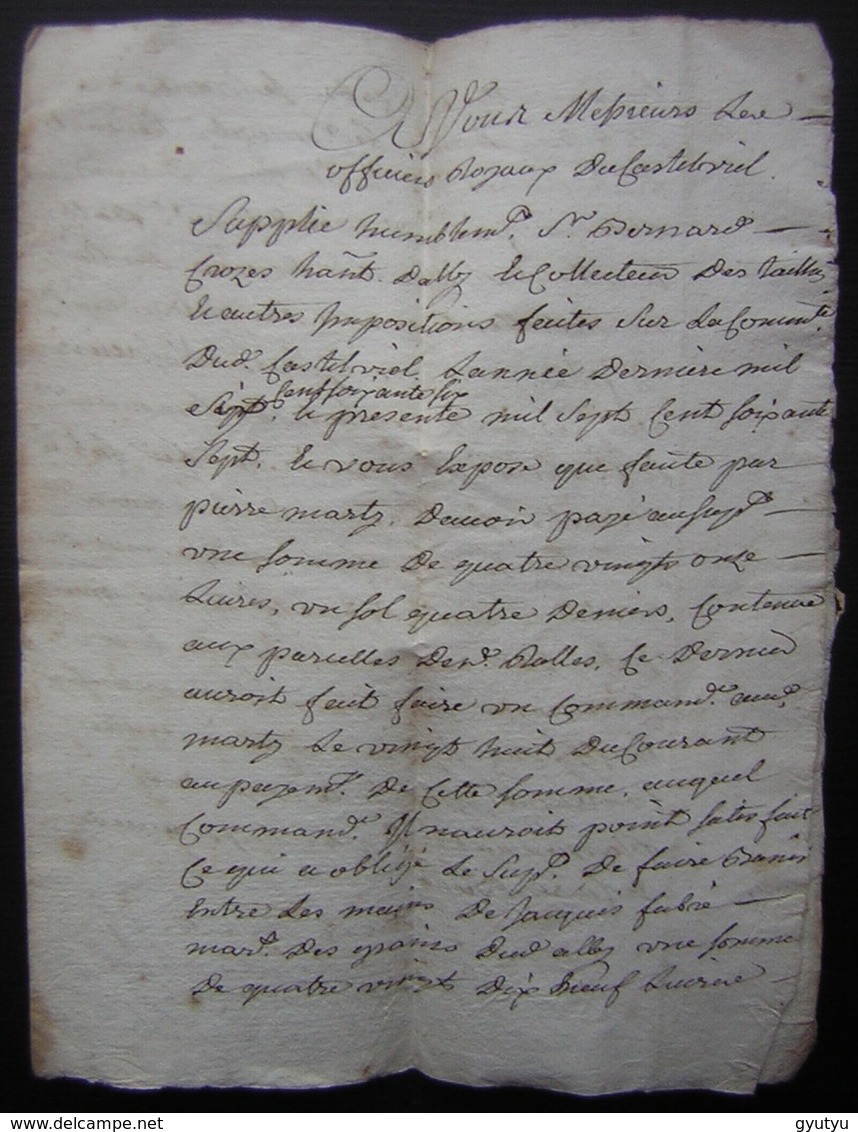 A Vous Messieurs Les
officiers Royaux Du Castelviel.
Supplie humblemt. Sr. Bernard
Crozes hañt. Dalby Et Collecteur Des tailles
Et autres Impositions faites Sur La Commté.
Dud. Castelviel Lannée Derniere mil
Sept Cent soixante six
Et presente mil Sept Cent soixante
Sept, Et vous Expose que faute par
pierre marty, Davoir payé au supt.
une somme De quatre vingts onze
Livres, un sol quatre Deniers, Contenue
aux parcelles Desd. Rolles, Ce Dernier
auroit fait faire un Commandt. aud.
marty Le vingt huit Du Courant
au payemt. De Cette somme, auquel
Commandt. Il nauroit point satisfait
Ce qui a obligé Le supt. De faire Banir
Entre Les mains De Jacques fabre
mard. Des grains Dud alby une somme
De quatre vingts Dix Neuf Livres
gyutyu